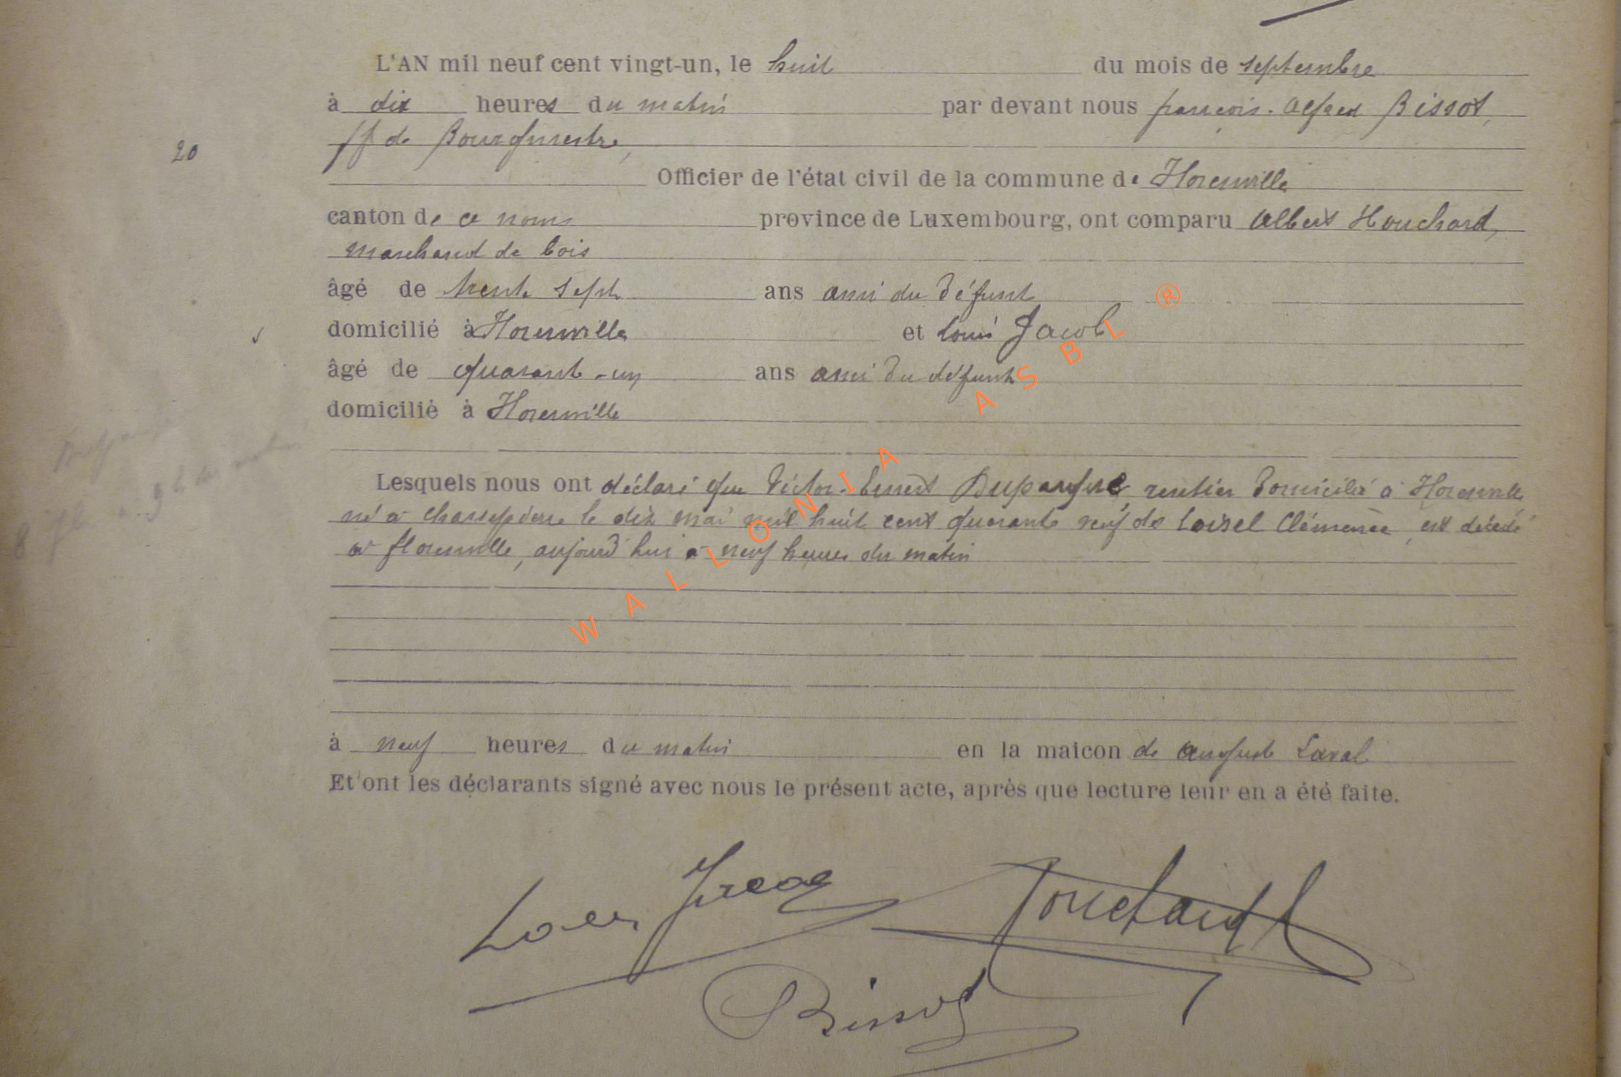 L'AN mil neuf cent vingt-un, le huit du mois de septembre
à dix heures du matin par devant nous françois-Alfred Bissot,
ff de Bourgmestre,
20
Officier de l'état civil de la commune de Florenville
canton de ce nom province de Luxembourg, ont comparu Albert Houchard,
marchand de bois
âgé de trente sept ans ami du défunt
domicilié à Florenville et Louis Jacob
âgé de quarante-un ans ami du défunt
domicilié à Florenville
Lesquels nous ont déclaré que Victor-Ernest renetier domicilié à Florenville
né à chassepierre le dix mai mil huit cent quarante neuf de Loizel Clémence, est décédé
à florenville, aujourd'hui à neuf heures du matin
à neuf heures du matin en la maicon de auguste Laval
Et ont les déclarants signé avec nous le présent acte, après que lecture leur en a été faite.
Bissot
WALLONIA ASBL ®